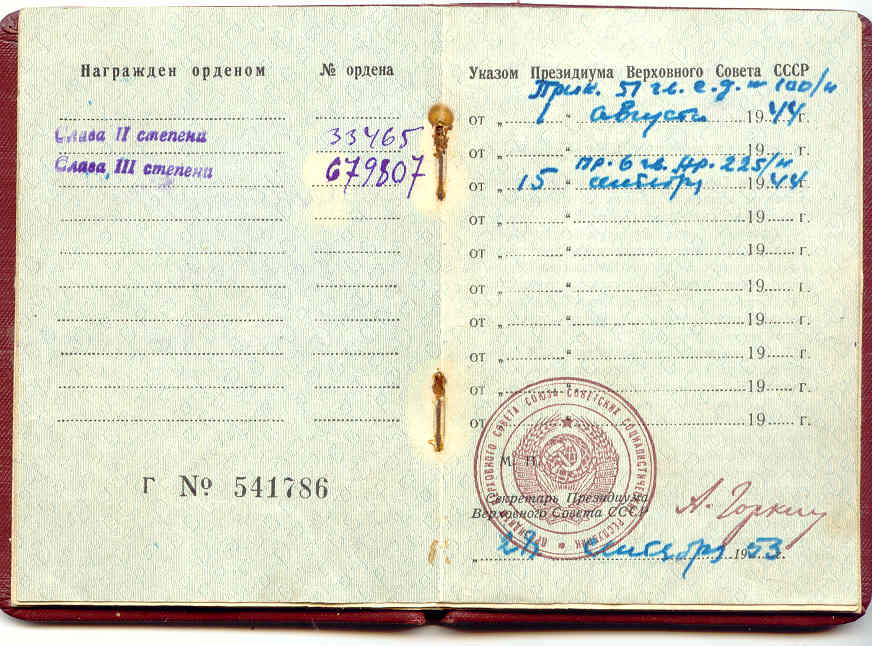 Награжден орденом
№ ордена
Слава II степени 33465
Слава III степени 679807
Г № 541786
Указом Президиума Верховного Совета СССР
Прик. 51 гв. с.д. № 100/н
от „ 1 “ августа 1944 г.
от „ “ 19 г.
пр. 6 гв. 225/н
от „ 15 “ сентября 1944 г.
от „ “ 19 г.
от „ “ 19 г.
от „ “ 19 г.
от „ “ 19 г.
от „ “ 19 г.
от „ “ 19 г.
от „ “ 19 г.
М. П.
Секретарь Президиума
Верховного Совета СССР
А. Горкин
сентября 1953 г.
ПРЕЗИДИУМ ВЕРХОВНОГО СОВЕТА СОЮЗА СОВЕТСКИХ СОЦИАЛИСТИЧЕСКИХ РЕСПУБЛИК